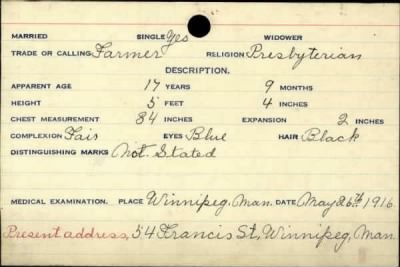 MARRIED SINGLE Yes WIDOWER
TRADE OR CALLING Farmer RELIGION Presbyterian
DESCRIPTION.
APPARENT AGE 17 YEARS 9 MONTHS
HEIGHT 5 FEET 4 INCHES
CHEST MEASUREMENT 34 INCHES EXPANSION 2 INCHES
COMPLEXION Fair EYES Blue HAIR Black
DISTINGUISHING MARKS Not. Stated
MEDICAL EXAMINATION. PLACE Winnipeg. Man. DATE May 26th, 1916
Present address, 54 Francis St, Winnipeg, Man